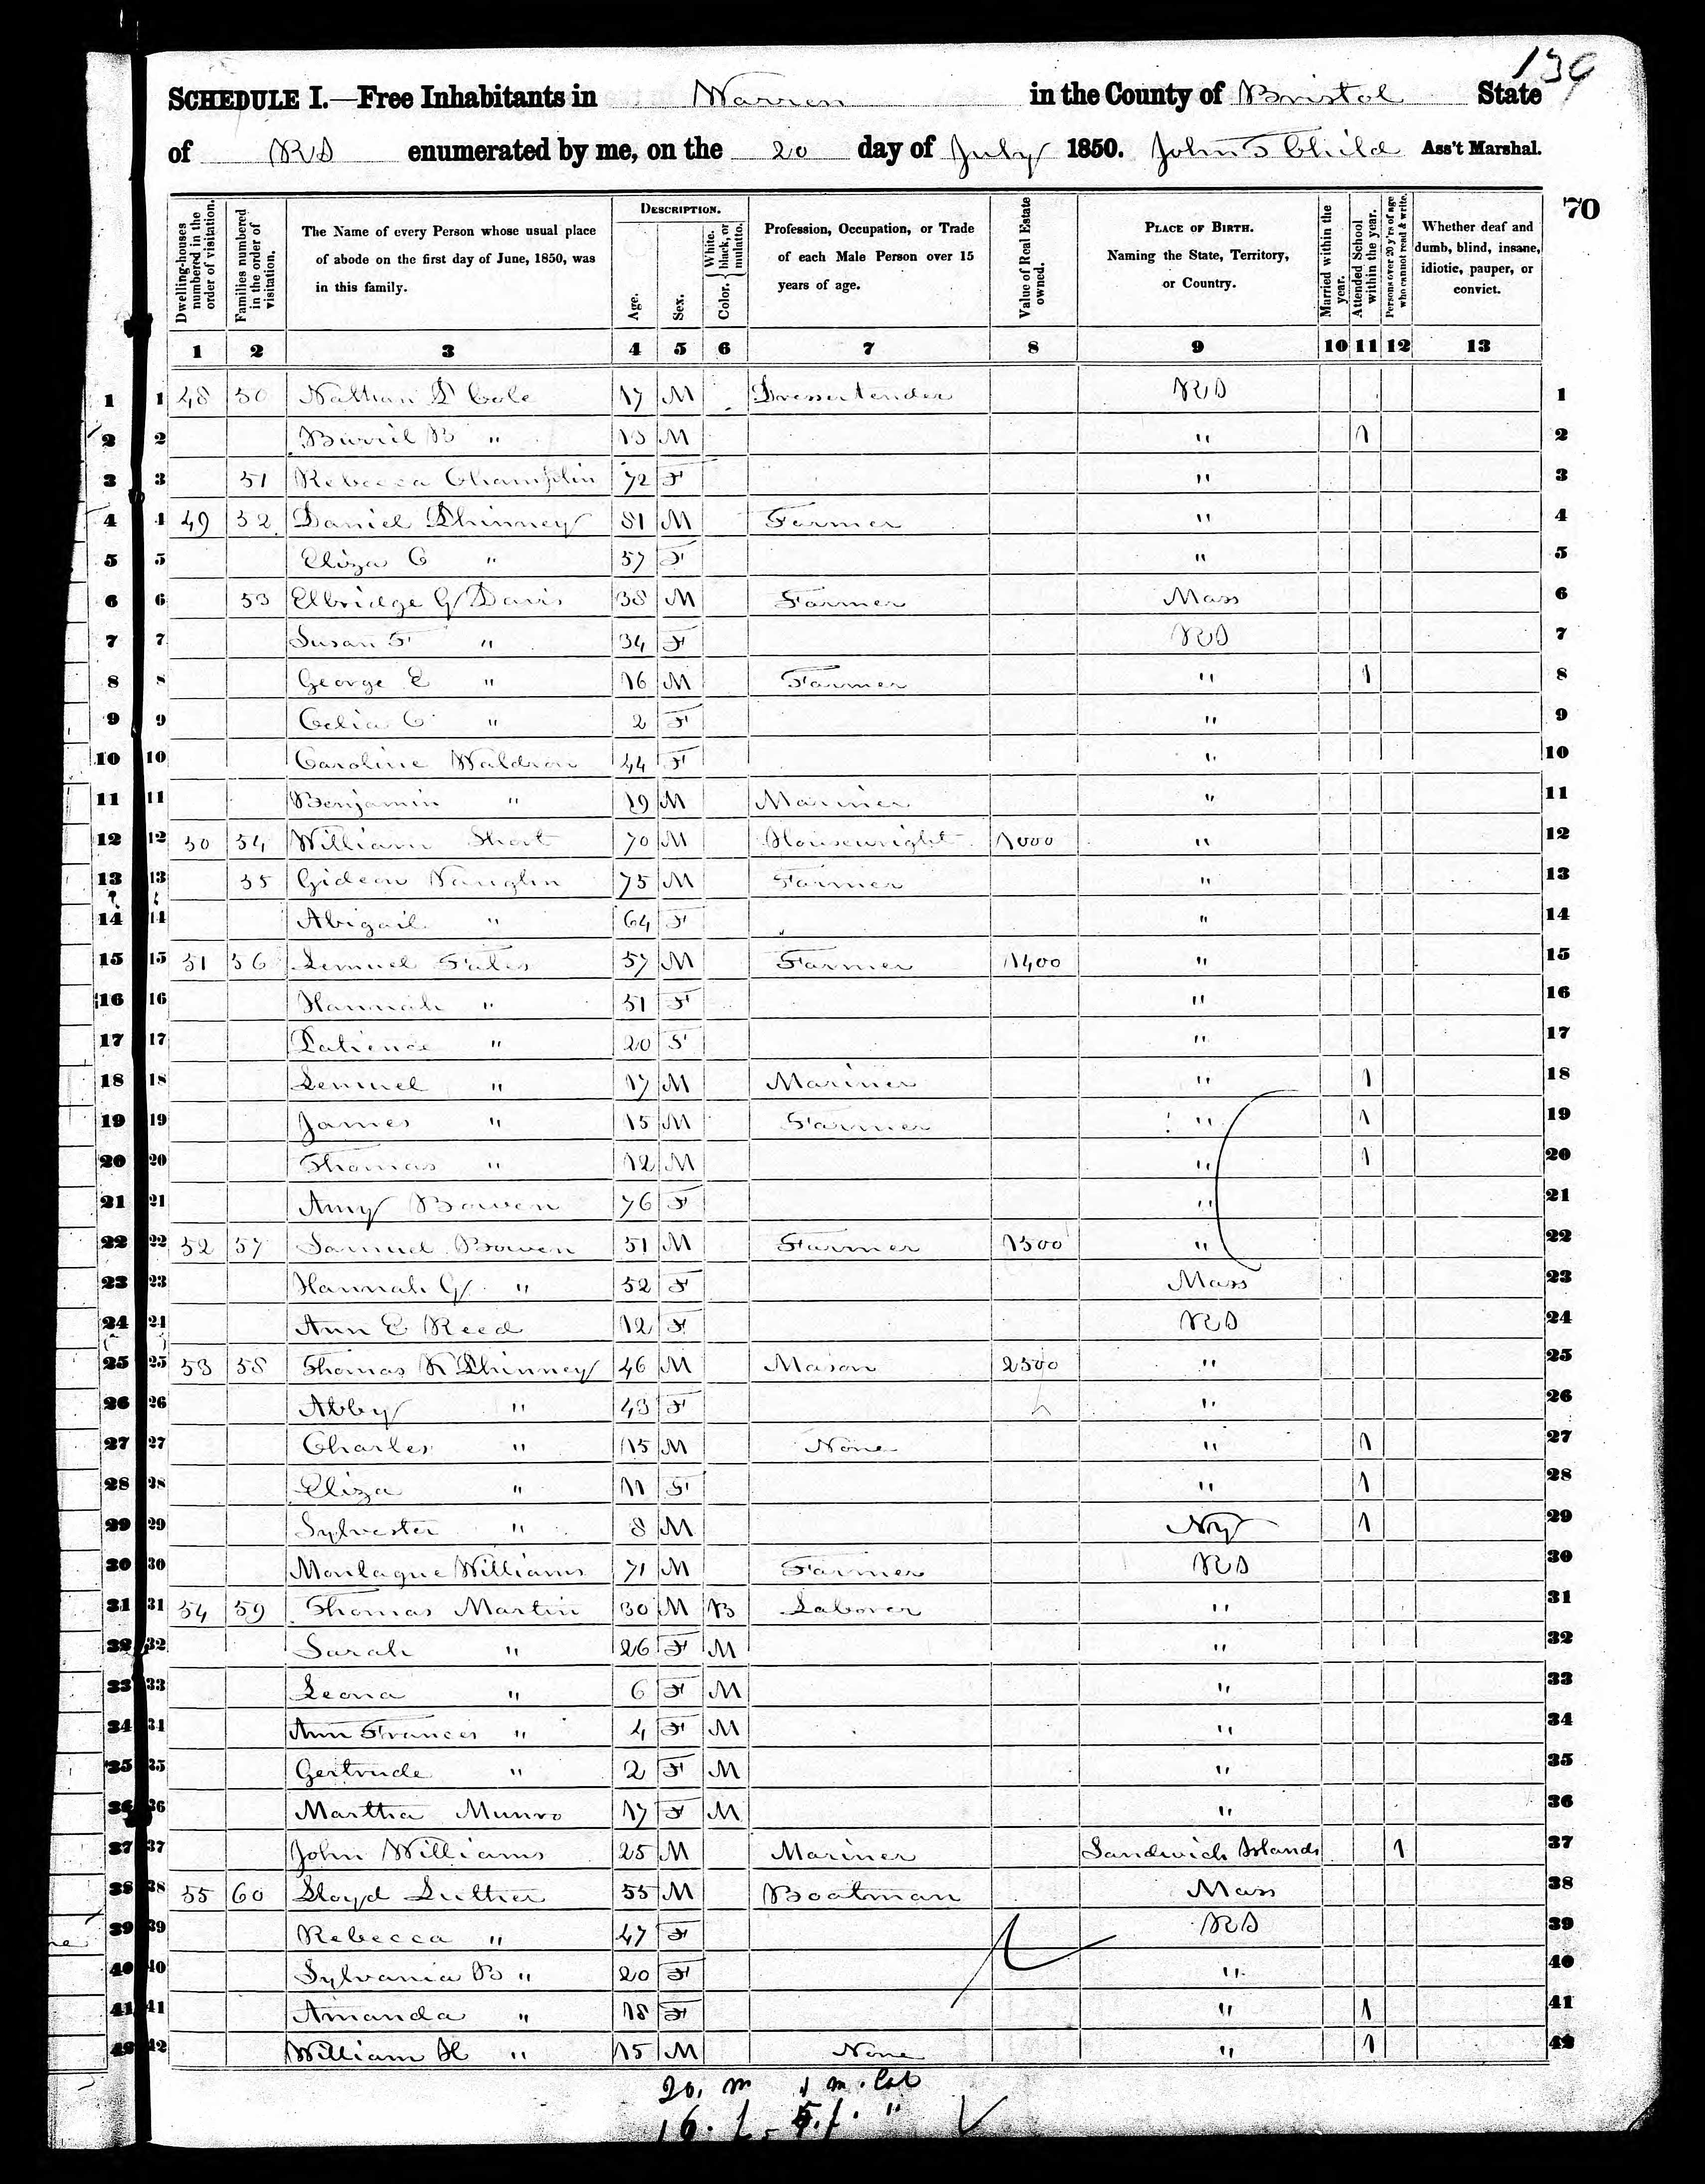 139
SCHEDULE I.—Free Inhabitants in Warren in the County of Bristol State
of RI enumerated by me, on the 20 day of July 1850. John T Child Ass't Marshal.
70
Dwelling-houses numbered in the order of visitation.
Families numbered in the order of visitation.
The Name of every Person whose usual place of abode on the first day of June, 1850, was in this family.
DESCRIPTION.
Age.
Sex.
Color. { White, black, or mulatto.
Profession, Occupation, or Trade of each Male Person over 15 years of age.
Value of Real Estate owned.
PLACE OF BIRTH. Naming the State, Territory, or Country.
Married within the year.
Attended School within the year.
Persons over 20 y'rs of age who cannot read & write.
Whether deaf and dumb, blind, insane, idiotic, pauper, or convict.
1 2 3 4 5 6 7 8 9 10 11 12 13
1 1 48 50 Nathan D Cole 17 M Dresser tender RI 1
2 2 Burril B " 13 M " 1 2
3 3 51 Rebecca Champlin 72 F " 3
4 4 49 52 Daniel Phinney 81 M Farmer " 4
5 5 Eliza C " 57 F " 5
6 6 53 Elbridge G Davis 38 M Farmer Mass 6
7 7 Susan F " 34 F RI 7
8 8 George E " 16 M Farmer " 1 8
9 9 Celia C " 2 F " 9
10 10 Caroline Waldron 44 F " 10
11 11 Benjamin " 19 M Mariner " 11
12 12 50 54 William Short 70 M Housewright 1000 " 12
13 13 55 Gideon Vaughn 75 M Farmer " 13
14 14 Abigail " 64 F " 14
15 15 51 56 Lemuel Fales 57 M Farmer 1400 " 15
16 16 Hannah " 51 F " 16
17 17 Patience " 20 F " 17
18 18 Lemuel " 17 M Mariner " 1 18
19 19 James " 15 M Farmer " 1 19
20 20 Thomas " 12 M " 1 20
21 21 Amy Bowen 76 F " 21
22 22 52 57 Samuel Bowen 51 M Farmer 1500 " 22
23 23 Hannah G " 52 F Mass 23
24 24 Ann E Reed 12 F RI 24
25 25 53 58 Thomas K Phinney 46 M Mason 2500 " 25
26 26 Abby " 43 F " 26
27 27 Charles " 15 M None " 1 27
28 28 Eliza " 11 F " 1 28
29 29 Sylvester " 8 M NY 1 29
30 30 Montague Williams 71 M Farmer RI 30
31 31 54 59 Thomas Martin 30 M B Laborer " 31
32 32 Sarah " 26 F M " 32
33 33 Leona " 6 F M " 33
34 34 Ann Frances " 4 F M " 34
35 35 Gertrude " 2 F M " 35
36 36 Martha Munro 17 F M " 36
37 37 John Williams 25 M Mariner Sandwich Islands 1 37
38 38 55 60 Lloyd Luther 55 M Boatman Mass 38
39 39 Rebecca " 47 F RI 39
40 40 Sylvania B " 20 F " 40
41 41 Amanda " 18 F " 1 41
42 42 William H " 15 M None " 1 42
20. m 1 m. Col
16. f - 5. f. "